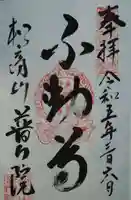 奉拝 令和五年三月六日
不動尊
普門院